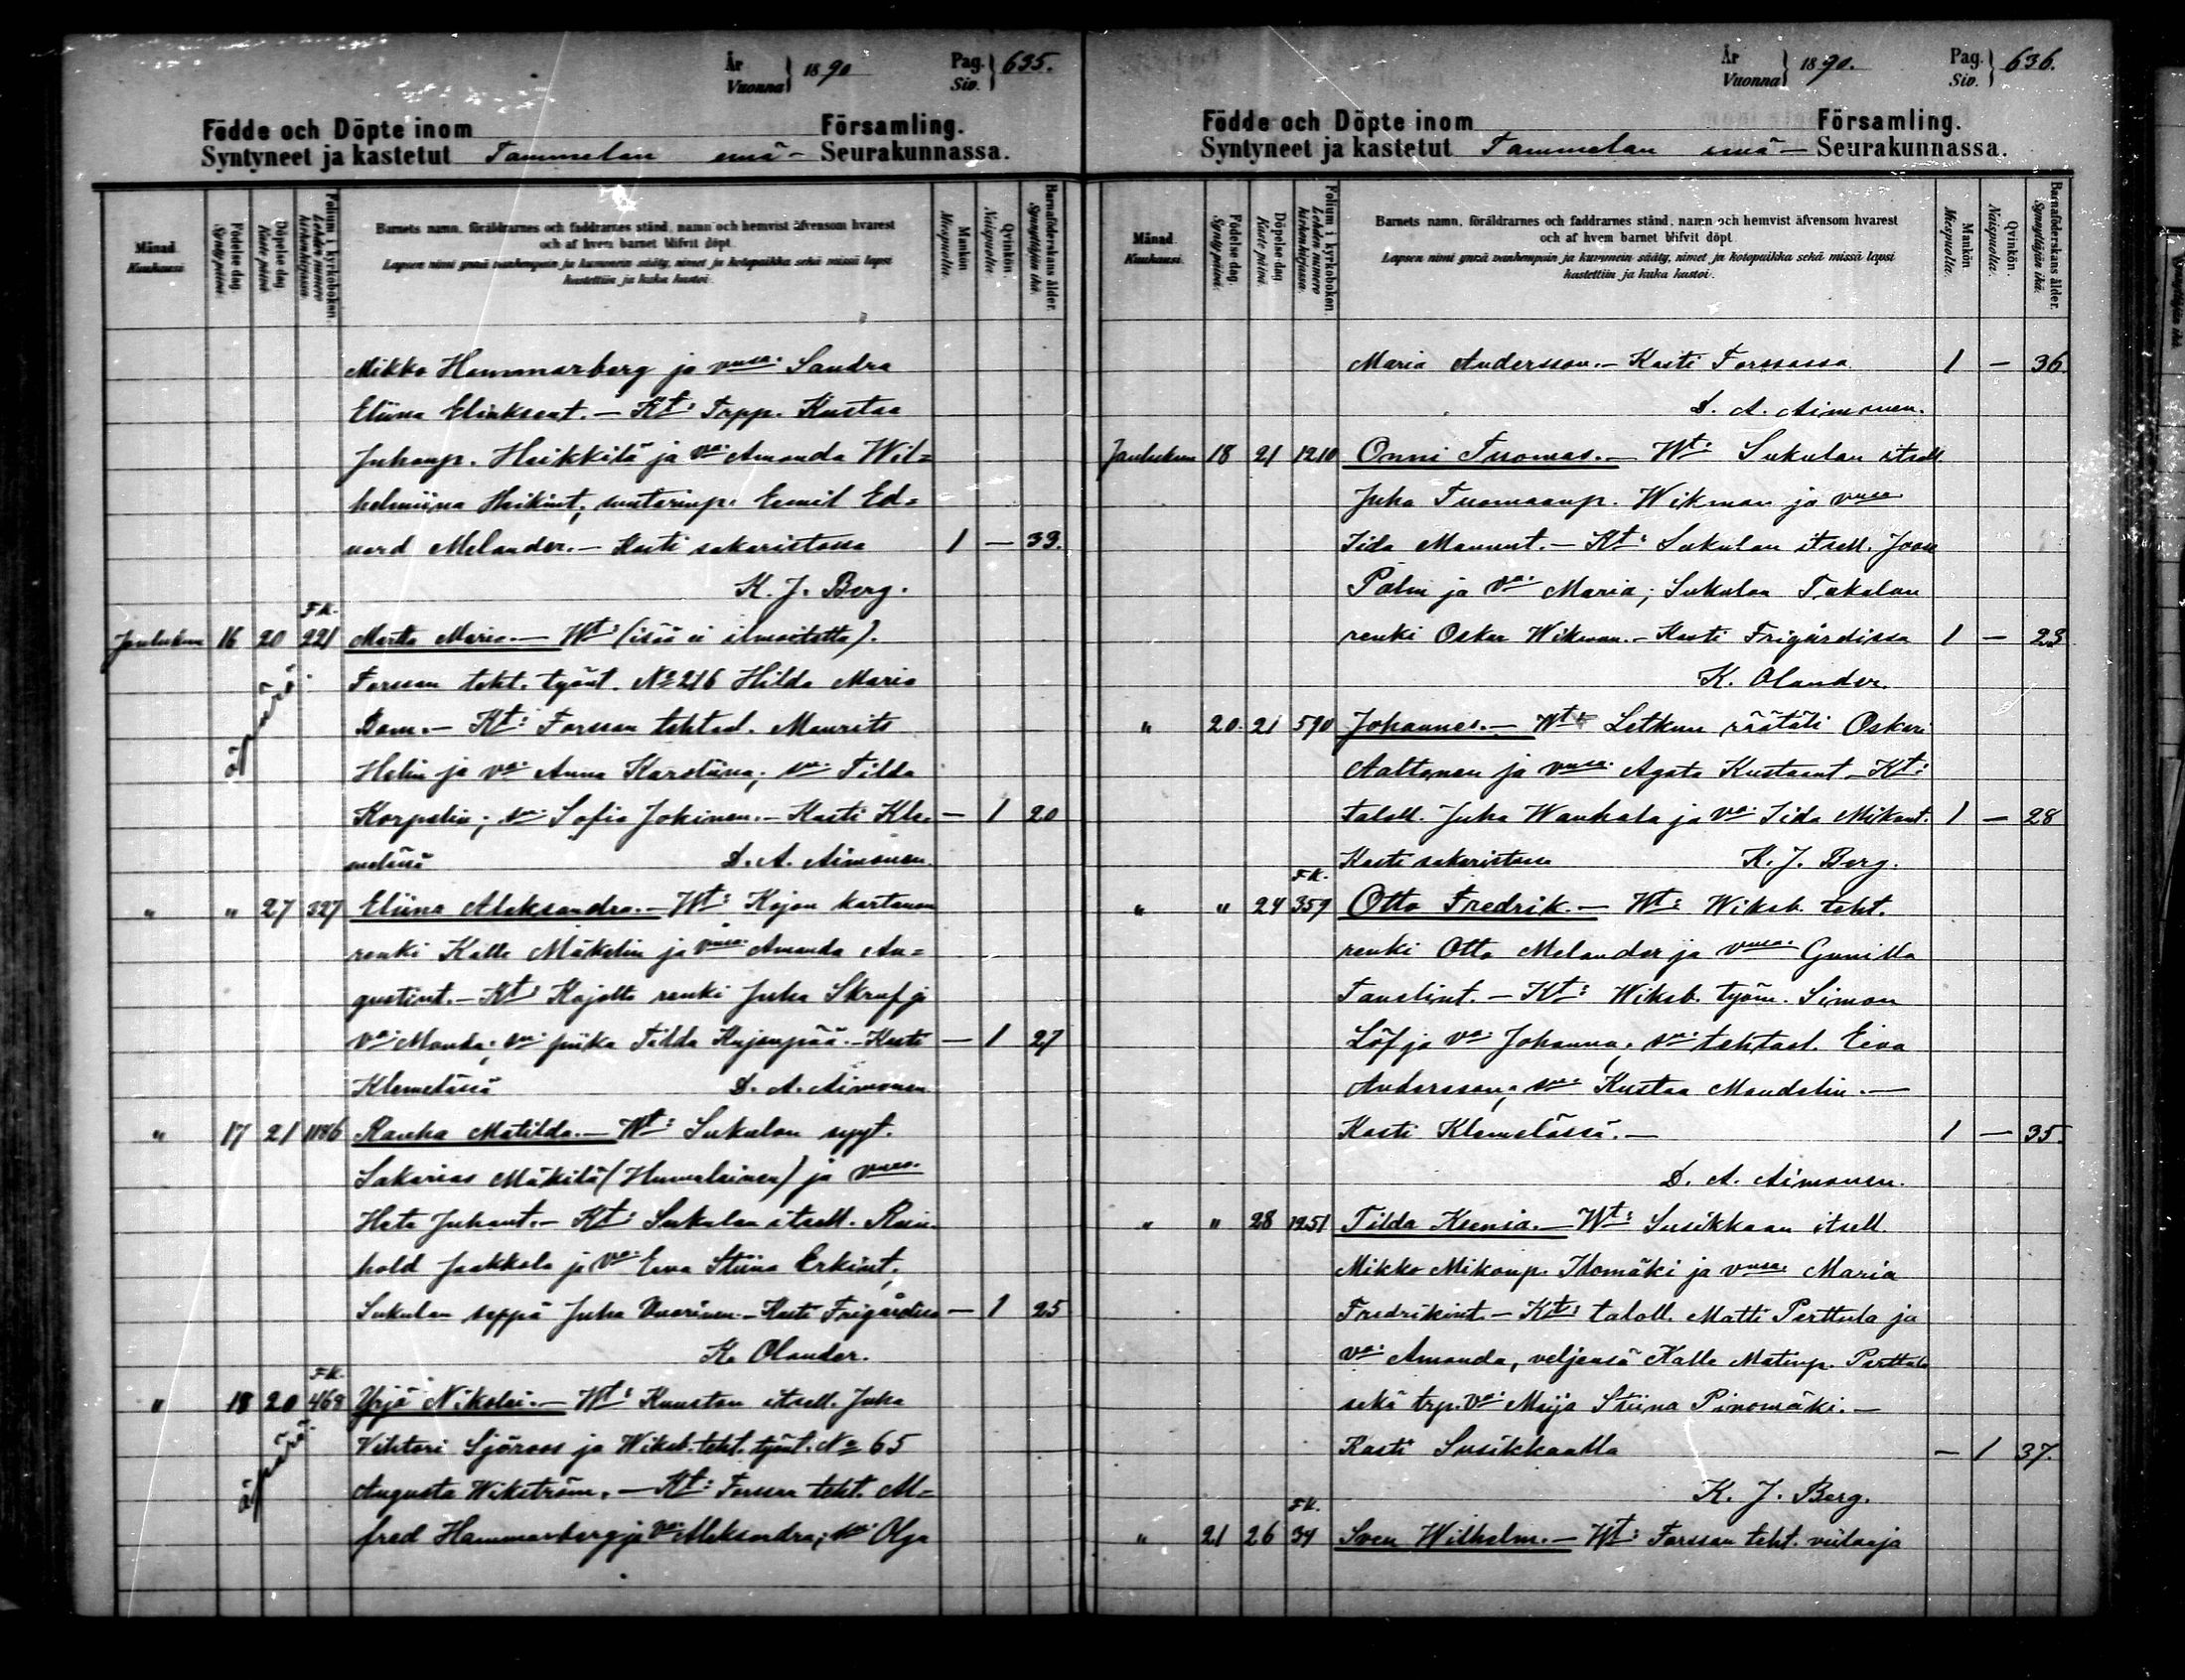 År Vuonna } 1890 Pag. Siv. } 635.
Födde och Döpte inom Församling.
Syntyneet ja kastetut Tammelan emä- Seurakunnassa.
Månad. Kuukausi.
Födelse dag. Synty päivä.
Döpelse dag. Kaste päivä.
Folium i kyrkoboken. Lehden numero kirkonkirjassa.
Barnets namn, föräldrarnes och faddrarnes stånd, namn och hemvist äfvensom hvarest
och af hvem barnet blifvit döpt.
Lapsen nimi ynnä vanhempain ja kummein sääty, nimet ja kotopaikka sekä missä lapsi
kastettiin ja kuka kastoi.
Mankön. Miespuolta.
Qvinkön. Naispuolta.
Barnaföderskans ålder. Synnyttäjän ikä.
Mikko Hammarberg ja vmsa. Sandra
Eliina Elinkseat. — Kt: Torpp. Kustaa
Juhanp. Heikkilä ja va. Amanda Wil=
helmiina Heikint.; suutarinp. Eemil Ed=
vard Melander. — Kasti sakaristossa 1 — 33.
K. J. Berg.
F.K.
Joulukuu 16 20 221 Martta Maria. — Wt: (isää ei ilmoitettu).
äpärä. Forssan teht. työnt. No 216 Hilda Maria
Dom. — Kt: Forssan tehtaal. Maurits
Helin ja va. Anna Karoliina; Tilda
Korpelin; Sofia Jokinen. — Kasti Kle- — 1 20
melässä D. A. Aimonen.
" " 27 327 Eliina Aleksandra. — Wt: Kojon kartanon
renki Kalle Mäkelin ja vmsa. Amanda Au=
gustint. — Kt: Kojolta renki Juha Skruf ja
va. Manda; piika Tilda Kujanpää. — Kasti — 1 27
Klemelässä D. A. Aimonen
" 17 21 1186 Rauha Matilda. — Wt: Sukulan
Sakarias Mäkilä (Humalainen) ja vmsa.
Heta Juhant. — Kt: Sukulan itsell. Rein
hold Jaakkola ja va. Eeva Stiina Erkint.,
Sukulan seppä Juha Vuorinen. — Kasti Frigårdissa — 1 25
K. Olander.
F.K.
" 18 20 469 Yrjö Nikolai. — Wt: Kuuston itsell. Juha
äpärä. Vihtori Sjöroos ja Wiksb. teht. työnt. No 65
Augusta Wikström. — Kt: Forssan teht. Al=
fred Hammarberg ja va. Aleksandra; Olga
År Vuonna } 1890. Pag. Siv. } 636.
Födde och Döpte inom Församling.
Syntyneet ja kastetut Tammelan emä- Seurakunnassa.
Månad. Kuukausi.
Födelse dag. Synty päivä.
Döpelse dag. Kaste päivä.
Folium i kyrkoboken. Lehden numero kirkonkirjassa.
Barnets namn, föräldrarnes och faddrarnes stånd, namn och hemvist äfvensom hvarest
och af hvem barnet blifvit döpt.
Lapsen nimi ynnä vanhempain ja kummein sääty, nimet ja kotopaikka sekä missä lapsi
kastettiin ja kuka kastoi.
Mankön. Miespuolta.
Qvinkön. Naispuolta.
Barnaföderskans ålder. Synnyttäjän ikä.
Maria Andersson. — Kasti Forssassa 1 — 36
D. A. Aimonen.
Joulukuu 18 21 1210 Onni Tuomas. — Wt: Sukulan itsell.
Juha Tuomaanp. Wikman ja vmsa
Iida Manunt. — Kt: Sukulan itsell. Joose
Palm ja va. Maria; Sukulan Takalan
renki Oskar Wikman. — Kasti Frigårdissa 1 — 23
K. Olander.
" 20 21 590 Johannes. — Wt: Letkun räätäli Oskari
Aaltonen ja vmsa. Agata Kustaant. — Kt:
taloll. Juha Wanhala ja va. Iida Mikont. 1 — 28
Kasti sakaristossa K. J. Berg.
F.K.
" " 24 359 Otto Fredrik. — Wt: Wiksb. teht.
renki Otto Melander ja vmsa. Gunilla
Tanelint. — Kt: Wiksb. työm. Simon
Löf ja va. Johanna; tehtaal. Eeva
Andersson; Kustaa Mandelin. —
Kasti Klemelässä. — 1 — 35.
D. A. Aimonen.
" " 28 1251 Tilda Ksenia. — Wt: Susikkaan itsell.
Mikko Mikonp. Ilomäki ja vmsa. Maria
Fredrikint. — Kt: taloll. Matti Perttula ja
va. Amanda, veljensä Kalle Matinp. Perttula
sekä trp. va. Maija Stiina Pinomäki. —
Kasti Susikkaalla — 1 37.
K. J. Berg.
F.K.
" 21 26 34 Sven Wilhelm. — Wt: Forssan teht. viilaaja